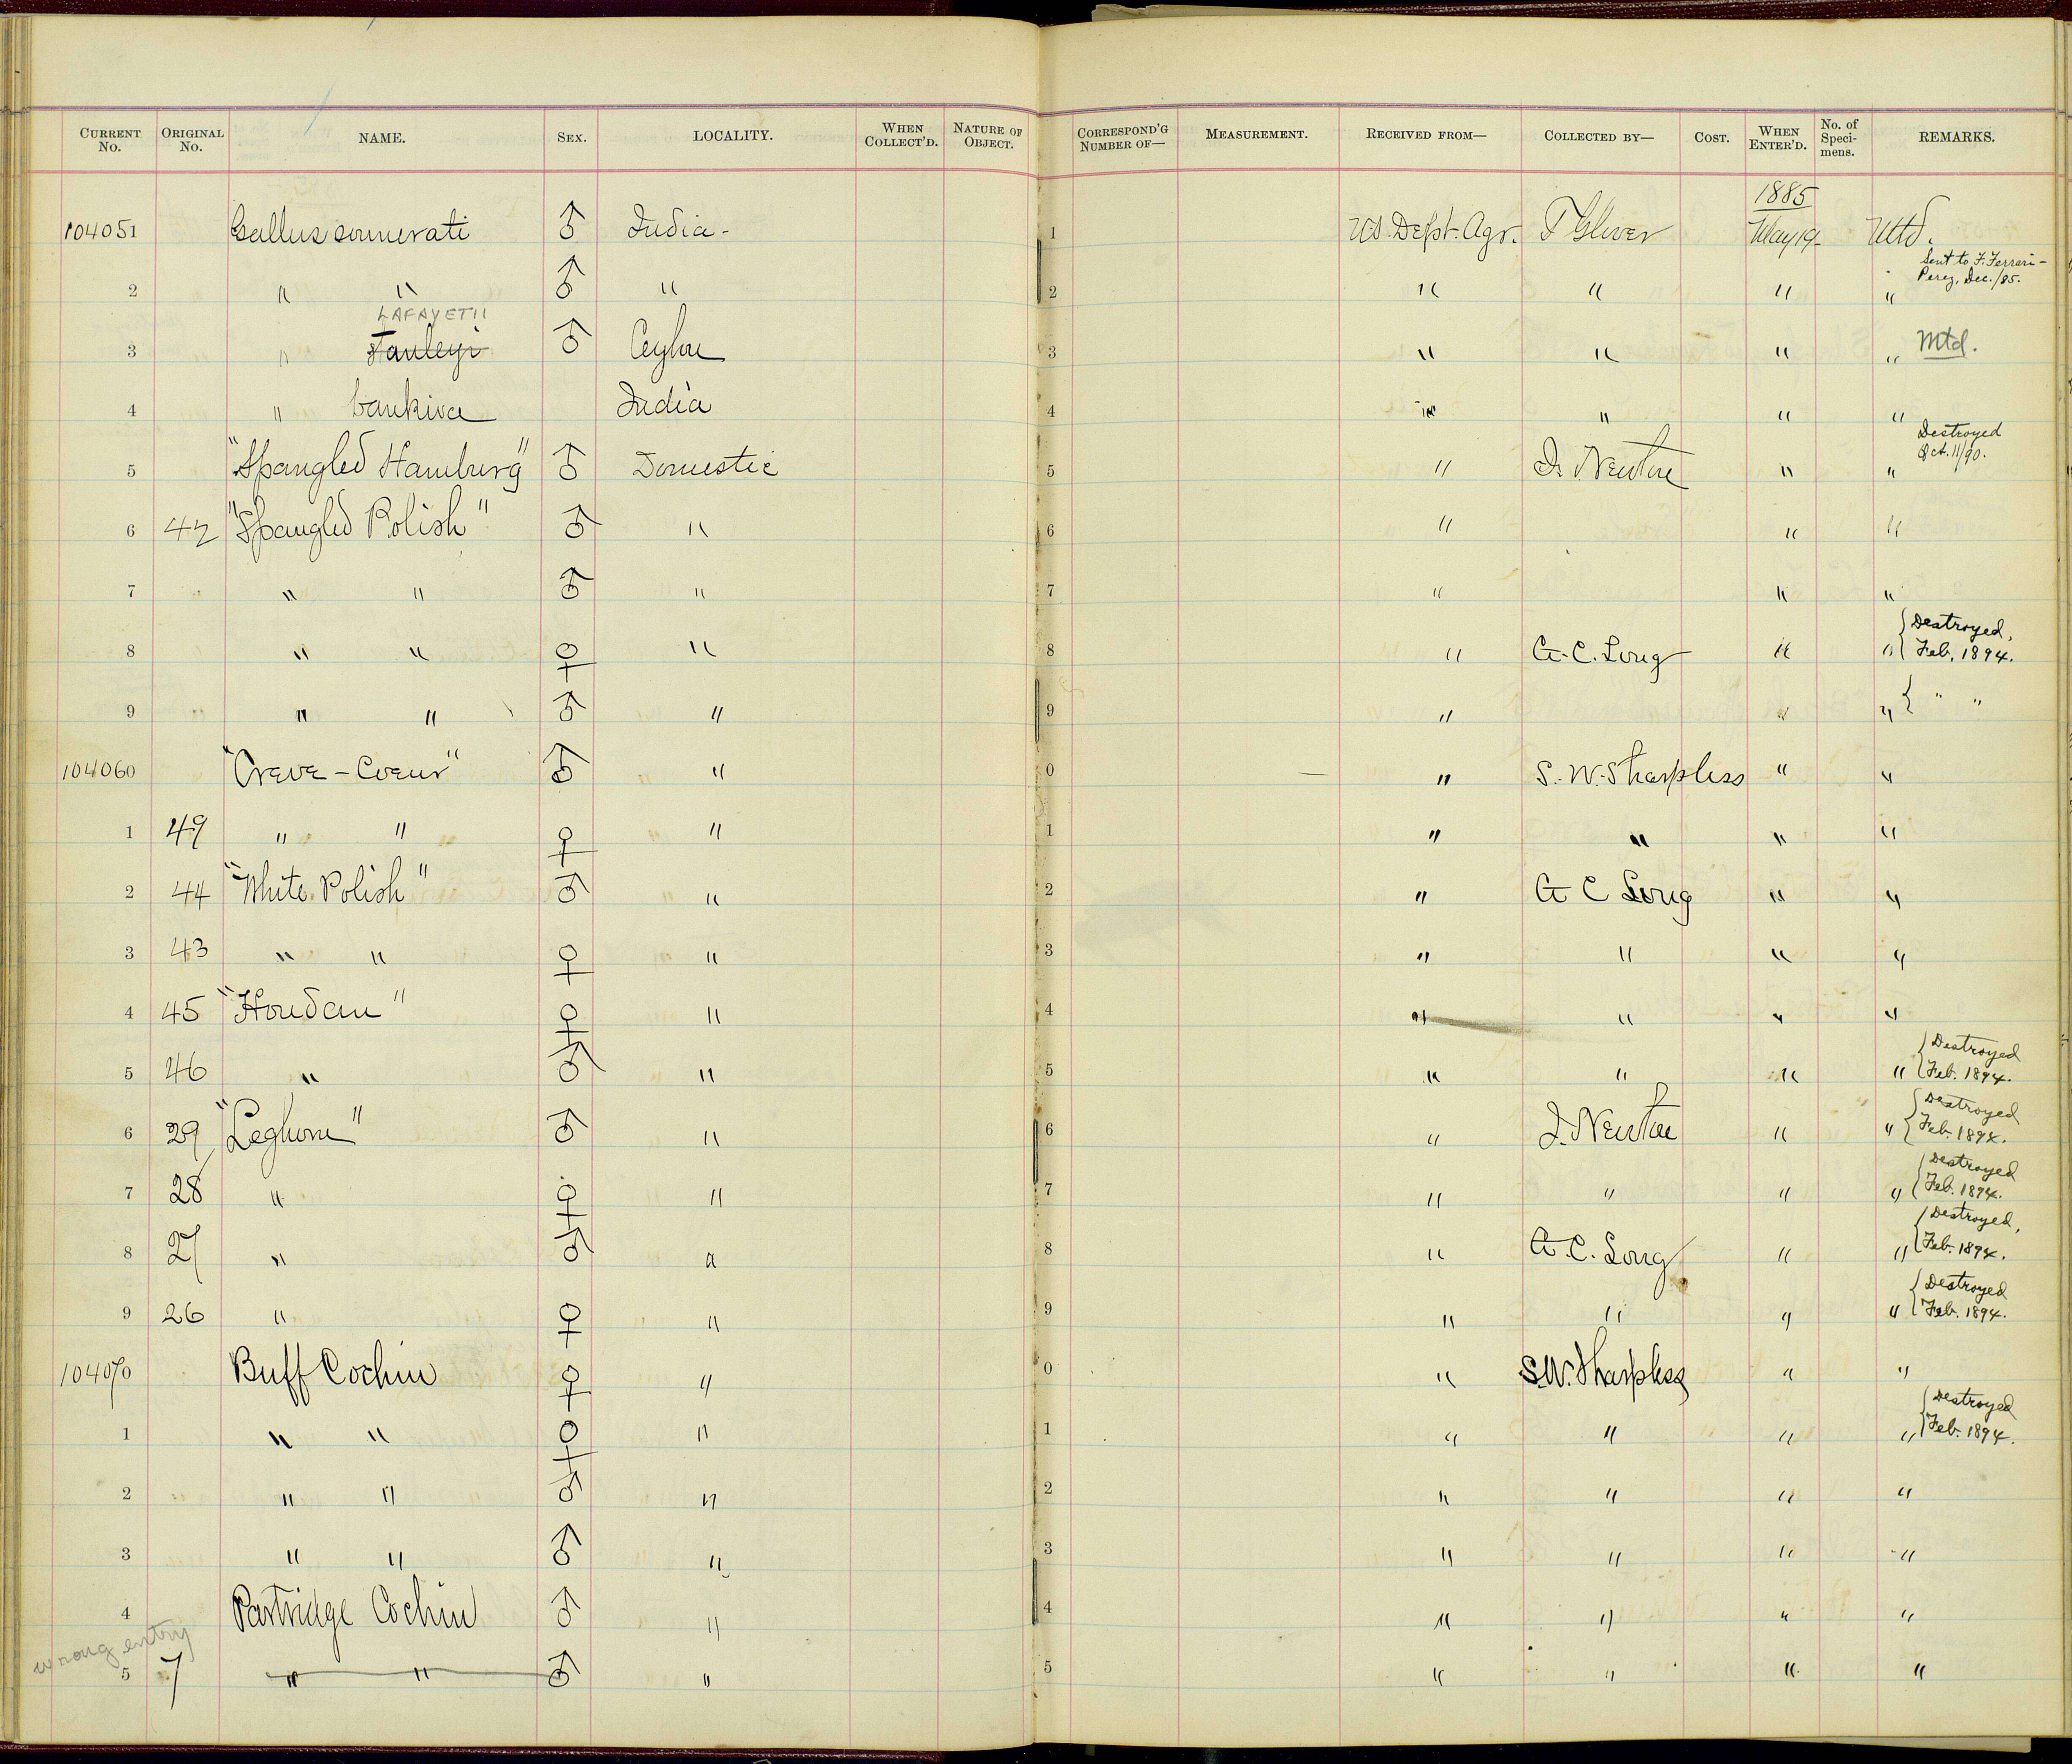 CURRENT No. ORIGINAL No. NAME. SEX. LOCALITY. WHEN COLLECT'D. NATURE OF OBJECT. CORRESPOND'G NUMBER OF— MEASUREMENT. RECEIVED FROM— COLLECTED BY— COST. WHEN ENTER'D. No. of Specimens. REMARKS.
1885
104051 Gallus sonnerati ♂ India - 1 U.S. Dept. Agr. T Glover May 19 Mtd.
Sent to F. Ferrari-
Perez, Dec./85.
2 " " ♂ " 2 " " " "
LAFAYETII
3 " Stanleyi ♂ Ceylon 3 " " " " Mtd.
4 " bankiva India 4 " " " "
Destroyed
Oct. 11/90.
5 "Spangled Hamburg" ♂ Domestic 5 " I. Newton " "
6 42 "Spangled Polish" ♂ " 6 " " "
7 " " ♂ " 7 " " "
8 " " ♀ " 8 " G. C. Long " " { Destroyed,
Feb, 1894.
9 " " ♂ " 9 " " " { " "
104060 "Creve-Coeur" ♂ " 0 " S. W. Sharpless " "
1 49 " " ♀ " 1 " " " "
2 44 "White Polish" ♂ " 2 " G C Long " "
3 43 " " ♀ " 3 " " " "
4 45 "Houdan" ♀ " 4 " " " "
5 46 " ♂ " 5 " " " " { Destroyed
Feb. 1894.
6 29 "Leghorn" ♂ " 6 " I. Newton " " { Destroyed
Feb. 1894.
7 28 " ♀ " 7 " " " " { Destroyed
Feb. 1894.
8 27 " ♂ " 8 " G. C. Long " " { Destroyed,
Feb. 1894.
9 26 " ♀ " 9 " " " " { Destroyed
Feb. 1894.
104070 Buff Cochin ♀ " 0 " S.W. Sharpless " "
1 " " ♀ " 1 " " " " { Destroyed
Feb. 1894.
2 " " ♂ " 2 " " " "
3 " " ♂ " 3 " " " "
4 Partridge Cochin ♂ " 4 " " " "
wrong entry
5 7 " " ♂ " 5 " " " "